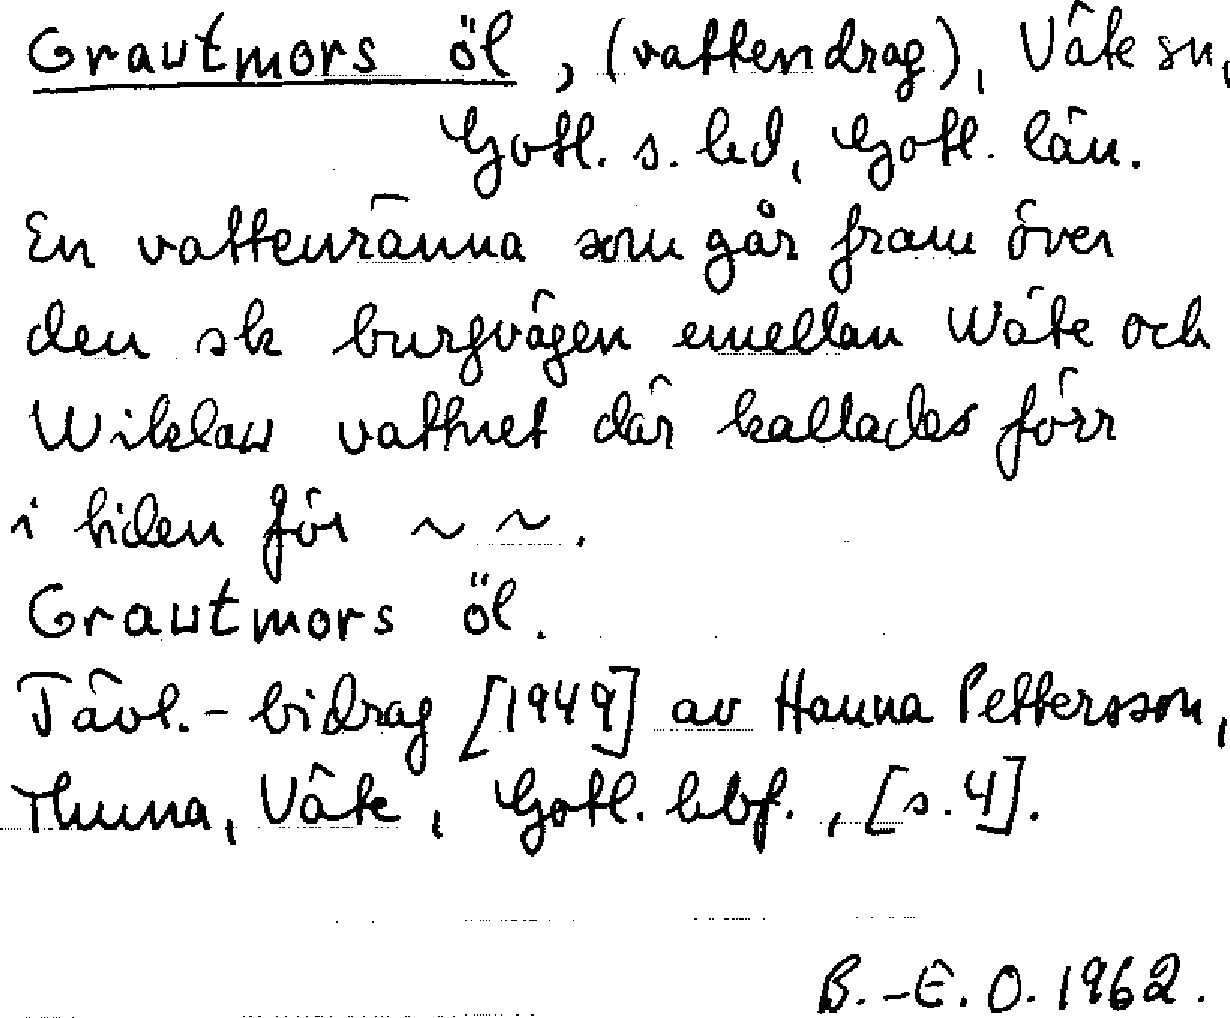 Grautmors öl, (vattendrag), Väte sn,
Gotl. s. hd, Gotl. län.
En vattenränna som går fram över
den sk burgvägen emellan Wäte och
Wiklau vattnet där kallades förr
i tiden för ~ ~.
Grautmors öl.
Tävl.-bidrag [1949] av Hanna Pettersson,
Thuna, Väte, Gotl. hbf., [s. 4].
B.-E. O. 1962.